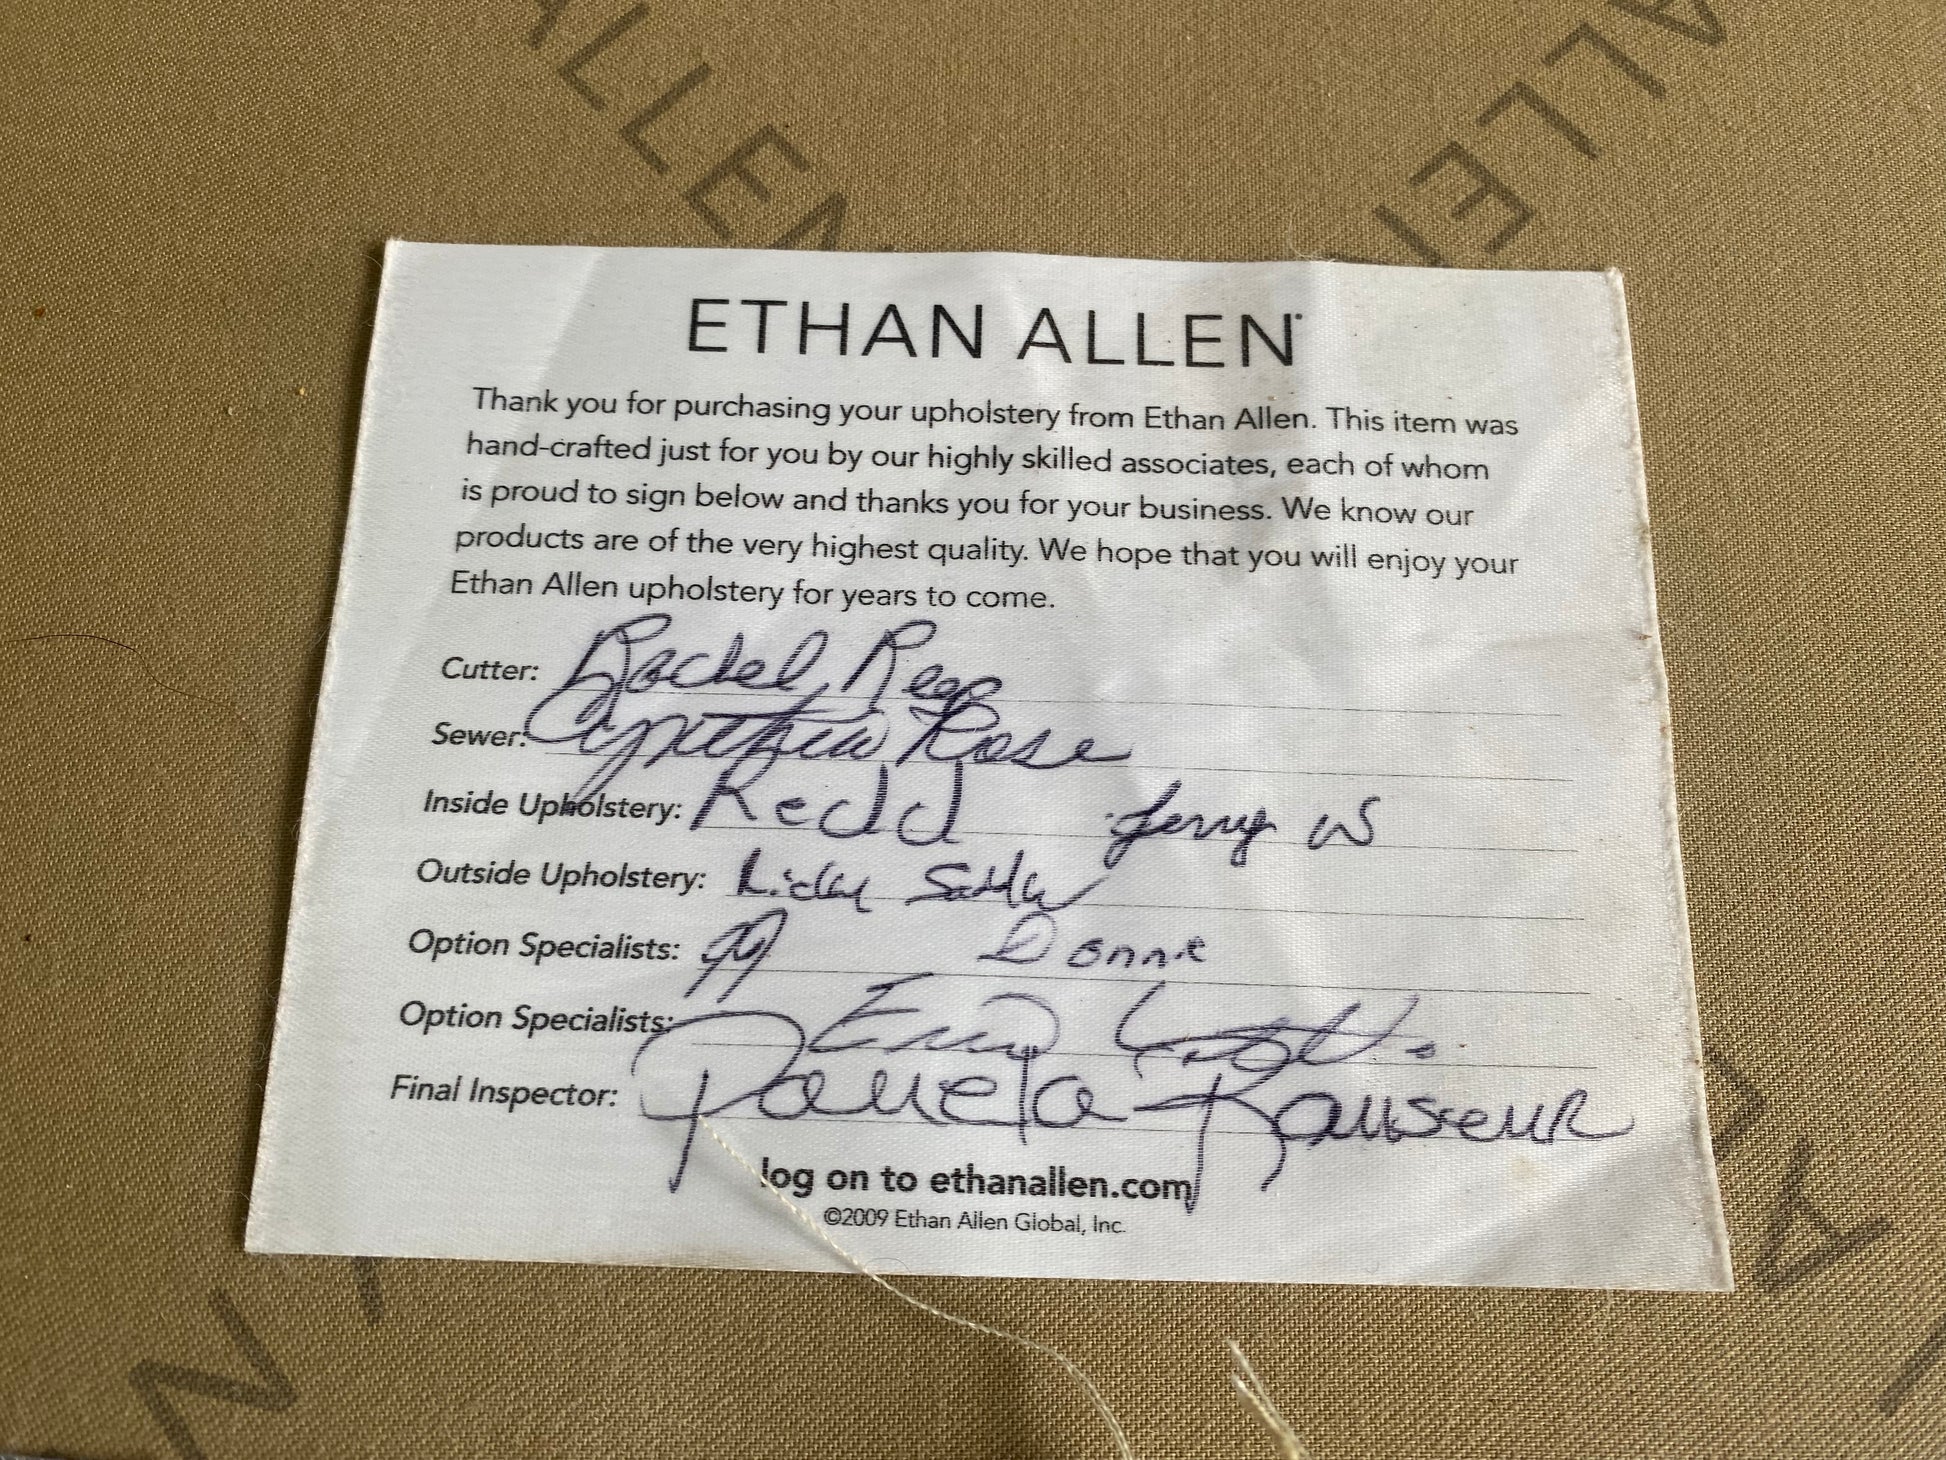 ALLEN
ALLE
ETHAN ALLEN
Thank you for purchasing your upholstery from Ethan Allen. This item was
hand-crafted just for you by our highly skilled associates, each of whom
is proud to sign below and thanks you for your business. We know our
products are of the very highest quality. We hope that you will enjoy your
Ethan Allen upholstery for years to come.
Cutter: Rachel Reep
Sewer: Cynthia Rose
Inside Upholstery: Redd Jerry W
Outside Upholstery:
Option Specialists: Donnie
Option Specialists:
Final Inspector: Pamela
log on to ethanallen.com
©2009 Ethan Allen Global, Inc.